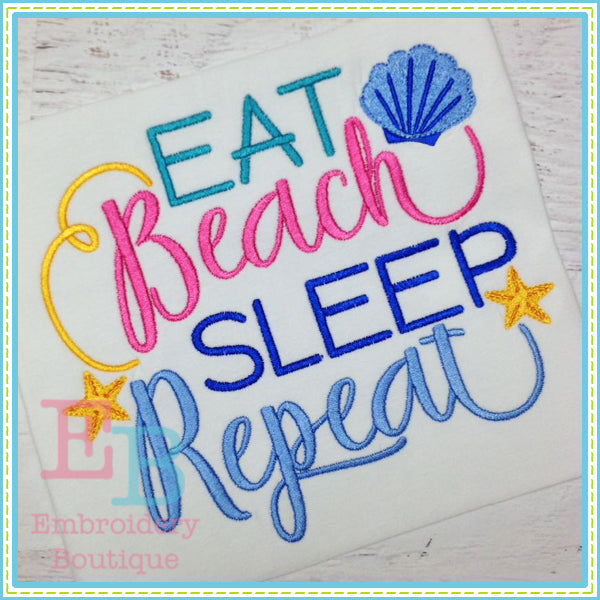 EAT
Beach
SLEEP
Repeat
EB
Embroidery
Boutique